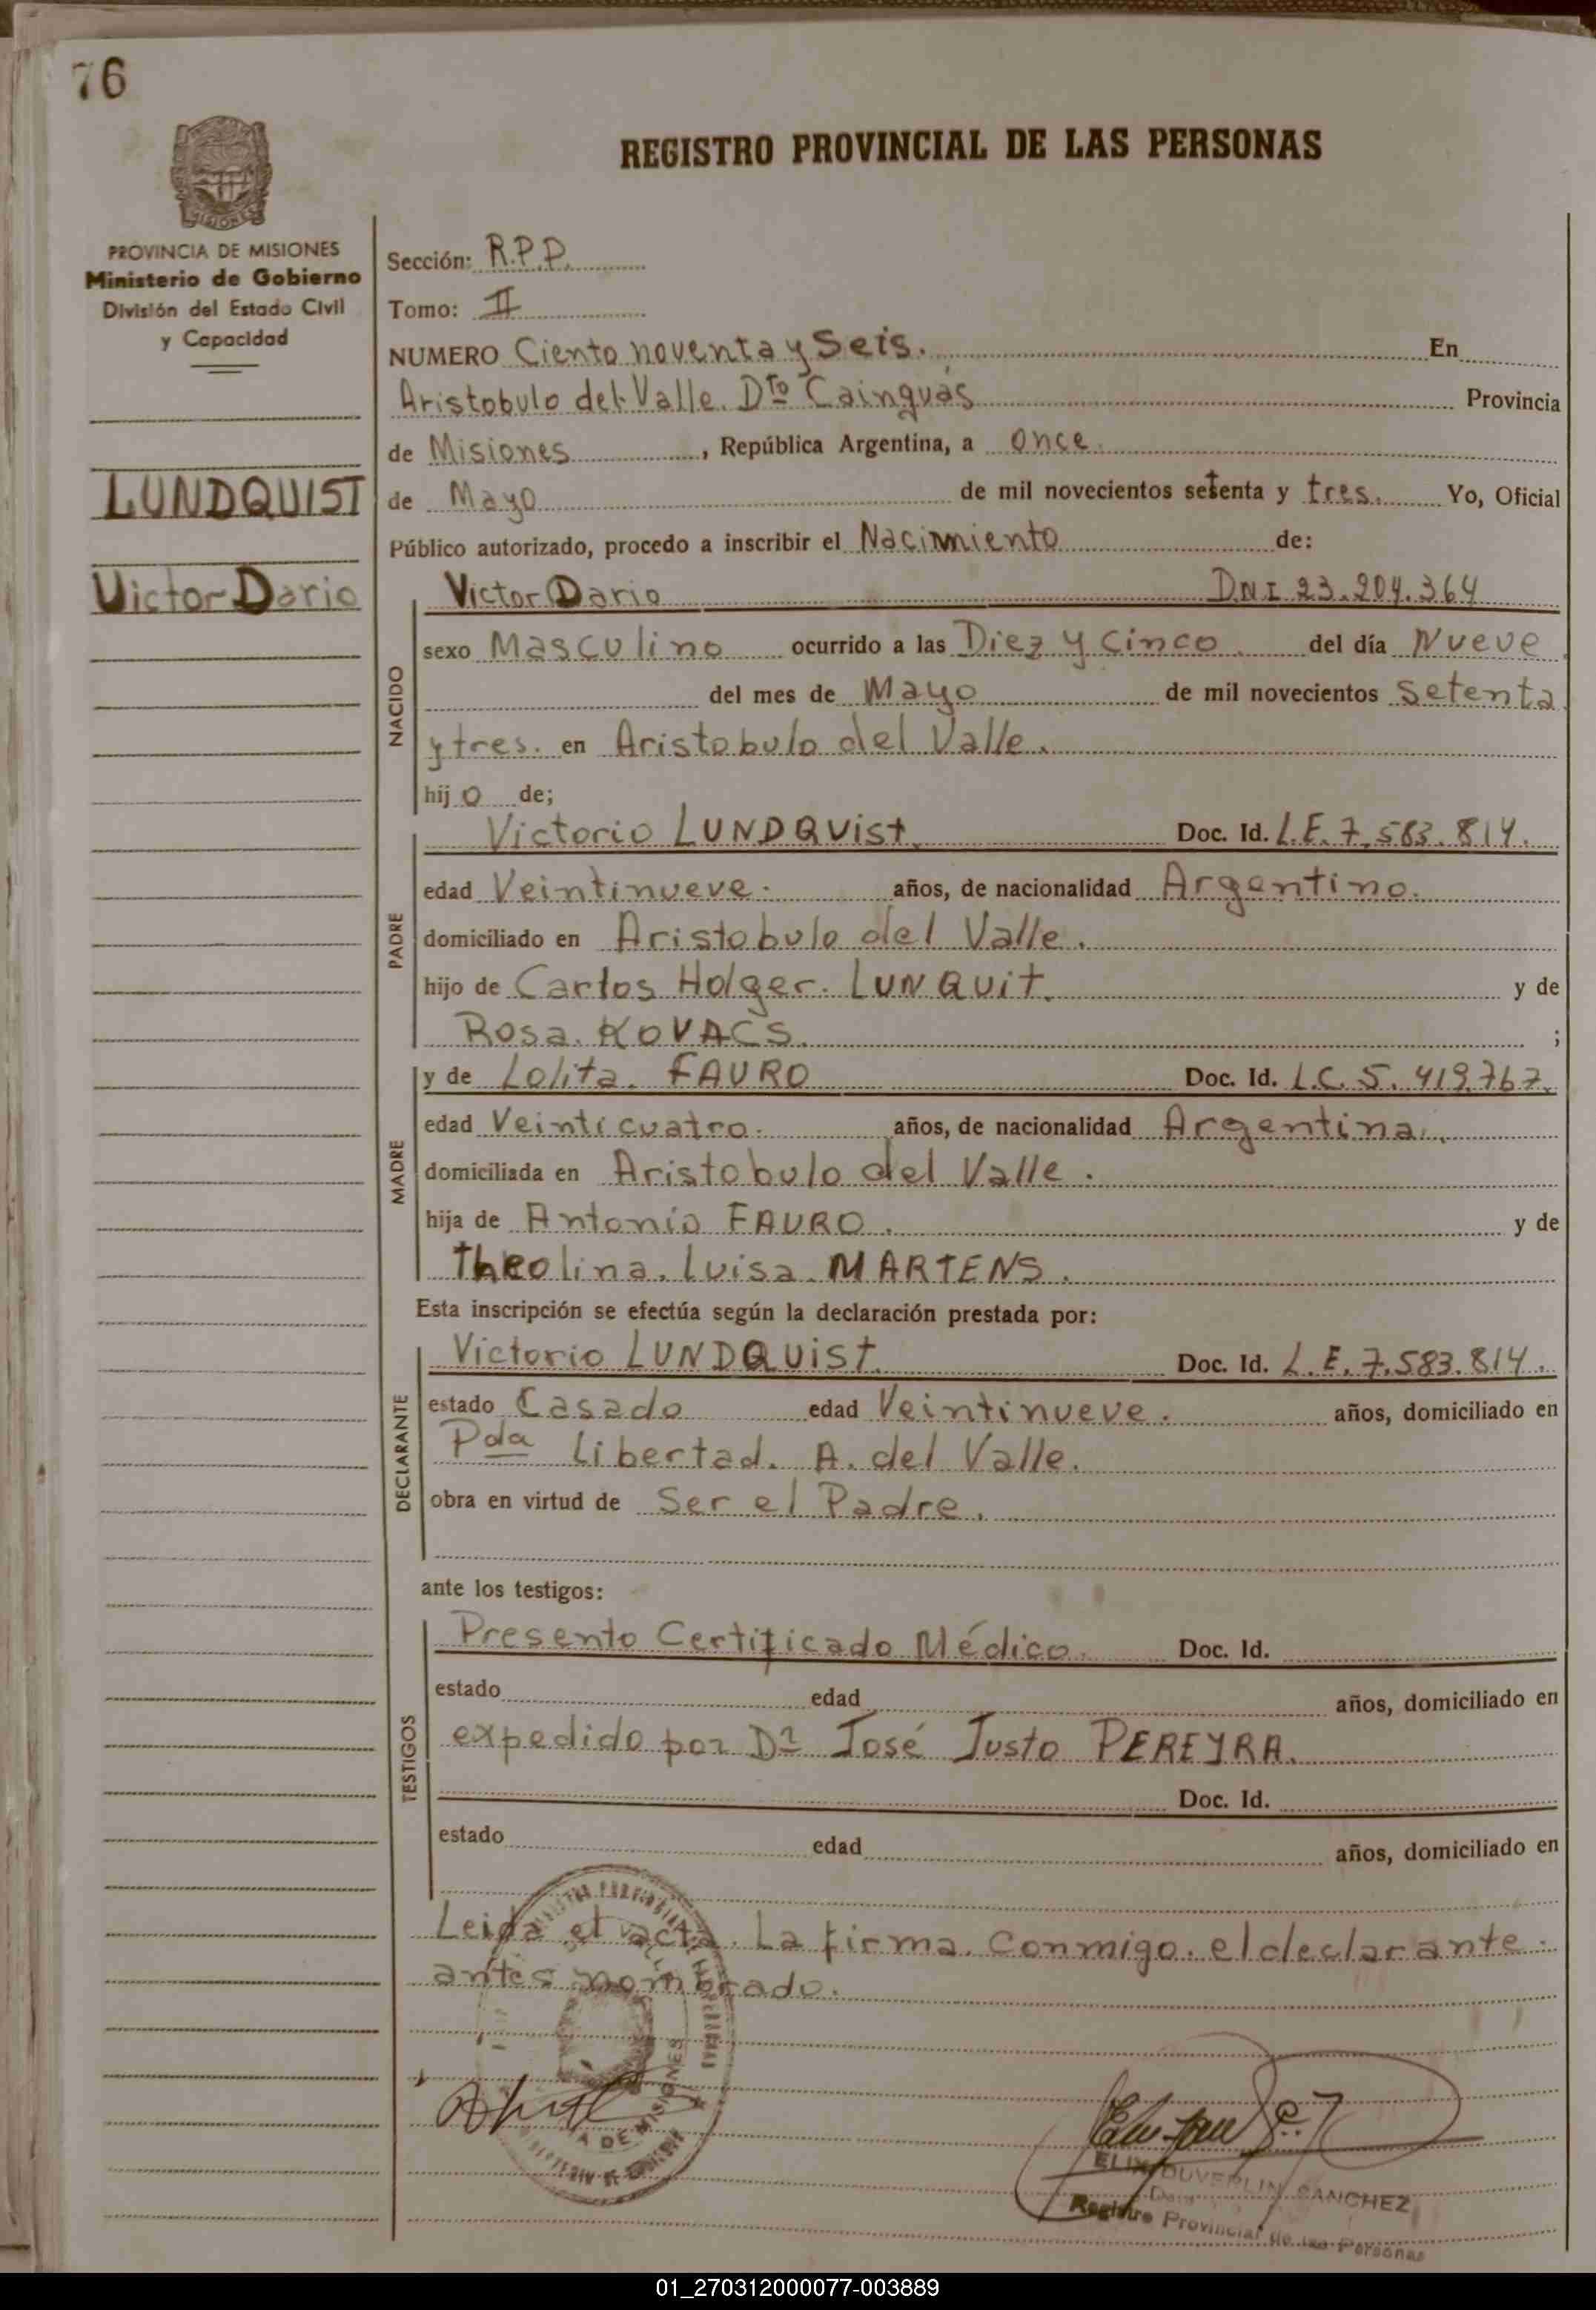 76
REGISTRO PROVINCIAL DE LAS PERSONAS
MISIONES
PROVINCIA DE MISIONES
Ministerio de Gobierno
División del Estado Civil
y Capacidad
LUNDQUIST
Victor Dario
Sección: R.P.P.
Tomo: II
NUMERO Ciento noventa y Seis. En
Aristobulo del Valle. Dto Cainguás Provincia
de Misiones, República Argentina, a once.
de Mayo de mil novecientos setenta y tres. Yo, Oficial
Público autorizado, procedo a inscribir el Nacimiento de:
NACIDO
Victor Dario DNI 23.204.364
sexo Masculino ocurrido a las Diez y Cinco. del día Nueve
del mes de Mayo de mil novecientos Setenta
y tres. en Aristobulo del Valle.
hij o de;
PADRE
Victorio LUNDQUist. Doc. Id. L.E. 7.583.814.
edad Veintinueve. años, de nacionalidad Argentino.
domiciliado en Aristobulo del Valle.
hijo de Carlos Holger. LUNQUit. y de
Rosa. KOVACS. ;
MADRE
y de Lolita. FAURO Doc. Id. L.C. 5.419.767.
edad Veinticuatro. años, de nacionalidad Argentina.
domiciliada en Aristobulo del Valle.
hija de Antonio FAURO. y de
Theolina. Luisa. MARTENS.
Esta inscripción se efectúa según la declaración prestada por:
DECLARANTE
Victorio LUNDQUist. Doc. Id. L.E. 7.583.814.
estado Casado edad Veintinueve. años, domiciliado en
Pda Libertad. A. del Valle.
obra en virtud de Ser el Padre.
ante los testigos:
TESTIGOS
Presento Certificado Médico. Doc. Id.
estado edad años, domiciliado en
expedido por Dr José Justo PEREYRA.
Doc. Id.
estado edad años, domiciliado en
Leida el acta. La firma. Conmigo. el declarante.
antes nombrado.
A DE MISIONES
ELIX DUVERLIN SANCHEZ
Registro Provincial de las Personas
01_270312000077-003889